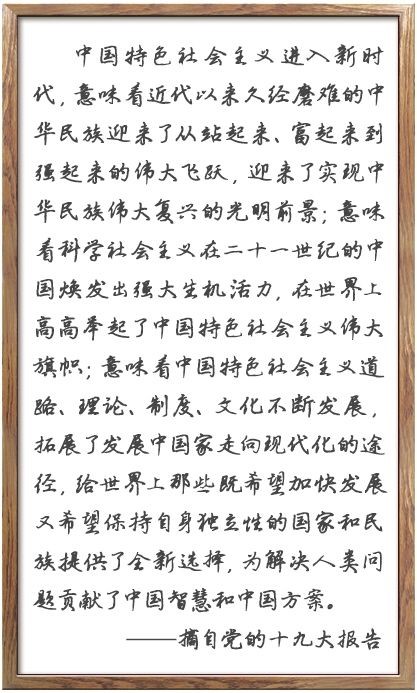 中国特色社会主义进入新时
代，意味着近代以来久经磨难的中
华民族迎来了从站起来、富起来到
强起来的伟大飞跃，迎来了实现中
华民族伟大复兴的光明前景；意味
着科学社会主义在二十一世纪的中
国焕发出强大生机活力，在世界上
高高举起了中国特色社会主义伟大
旗帜；意味着中国特色社会主义道
路、理论、制度、文化不断发展，
拓展了发展中国家走向现代化的途
径，给世界上那些既希望加快发展
又希望保持自身独立性的国家和民
族提供了全新选择，为解决人类问
题贡献了中国智慧和中国方案。
——摘自党的十九大报告